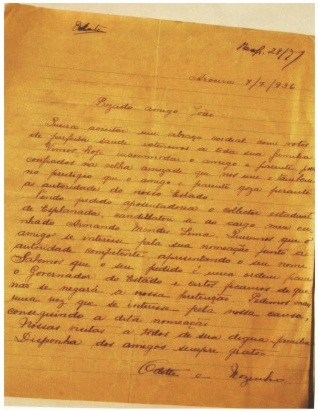 Resp. 28/7/
8/4/936
Prezado amigo João
aceitar um abraço cordial com votos
de perfeita saude extensivos a toda sua familia
hoje incommodar o amigo e parente
confiados na velha amizade que nos une e tambem
no prestigio que o amigo e parente goza perante
as autoridades do nosso Estado
Tendo pedido aposentadoria o collector estadual
de Esplanada, candidatou-se ao cargo meu cu-
nhado Armando Mendes Lima. Queremos que o
amigo se interesse pela sua nomeação junto a
autoridade competente, apresentando o seu nome
Sabemos que o seu pedido é uma ordem para
o Governador do Estado e certos ficamos de que
não se negará a nossa pretenção. Pedimos mais
uma vez que se interesse pela nossa causa,
conseguindo a dita nomeação
Nossas visitas a todos de sua digna familia
Disponha dos amigos sempre gratos
Odette e